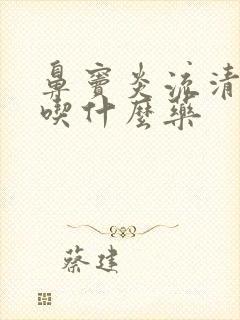 鼻窦炎流清
喫什麼藥
蔡建